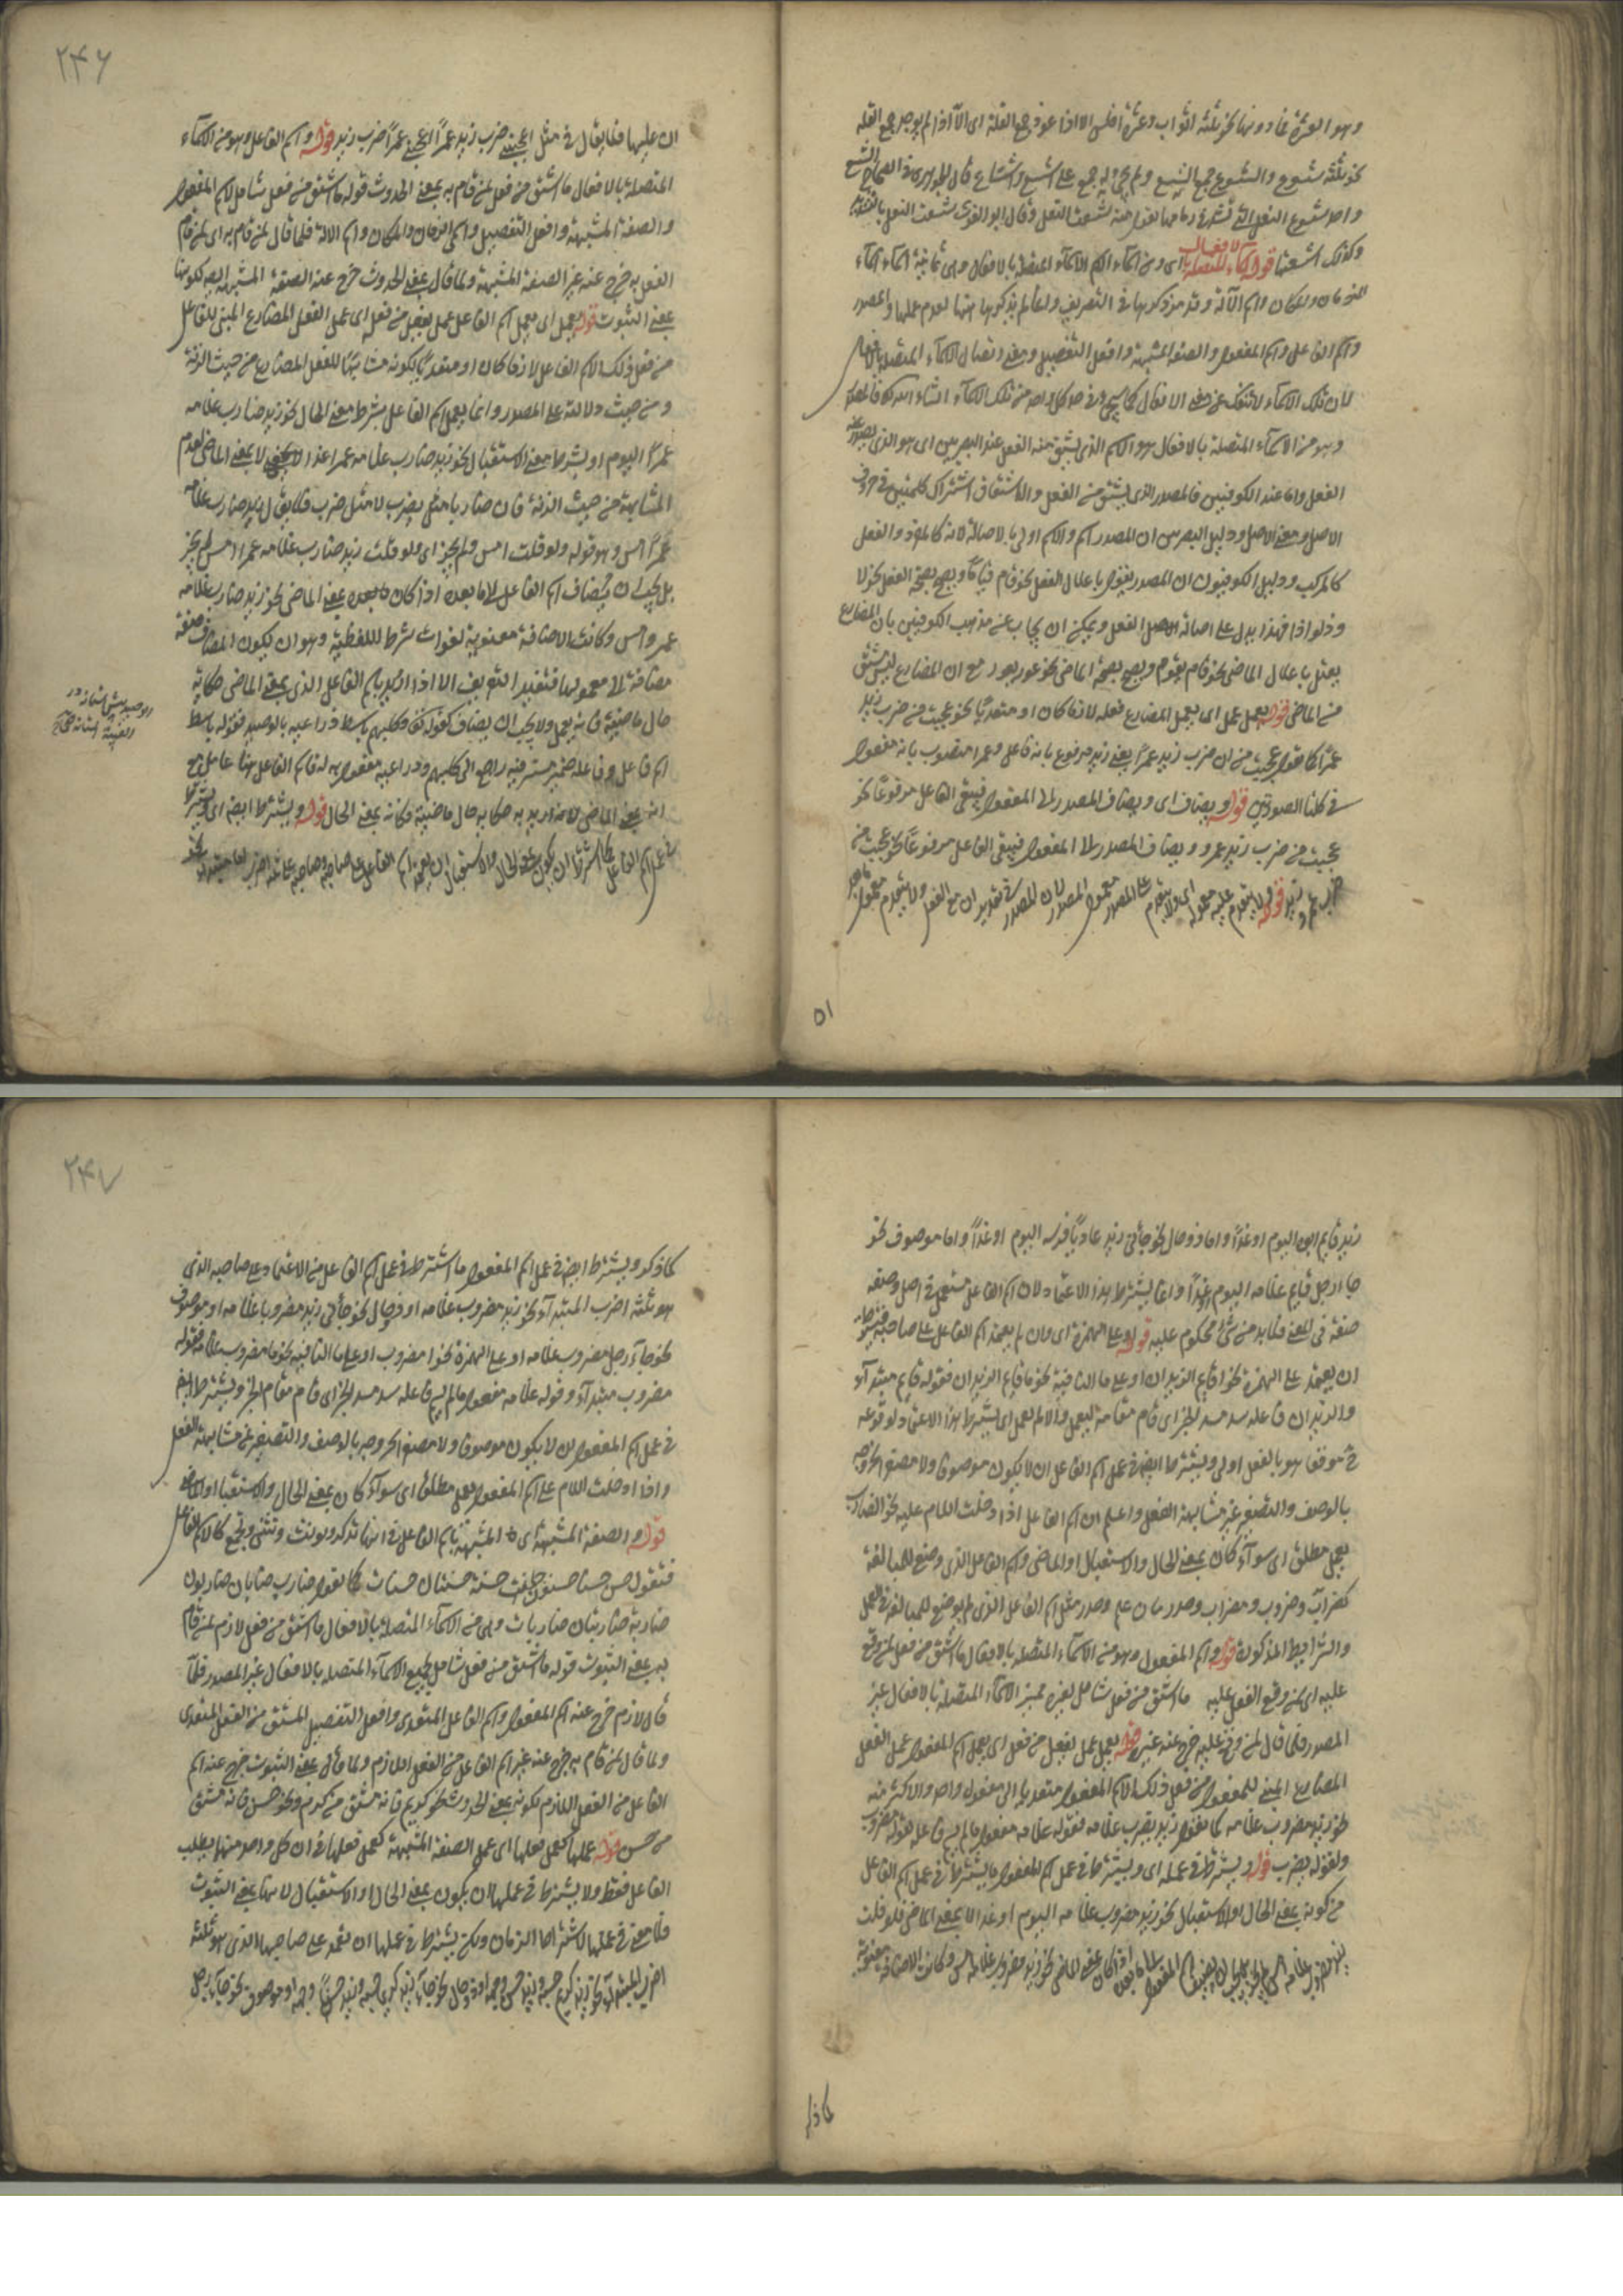 وهو العشرة فما دونها نحو ثلثة اثواب وعشرة افلس الا اذا عوز جمع القلة اى الا اذا لم يوجد جمع القلة
نحو ثلثة شسوع والشسوع جمع الشسع ولم يجئ جمع على اشسع واشساع قال الجوهرى فى الصحاح الشسع
واحد شسوع النعل التى تشد الى زمامها تقول منه شسعت النعل وقال ابو الغوث شسعت النعل بالتشديد
وكذلك اشسعتها قوله اسماء المتصلة بالافعال اى ومن اسماء الاسم الاسماء المتصلة بالافعال وهى ثمانية اسماء اسماء
الزمان والمكان واسم الآلة وقد مر ذكرها فى التصريف ولم يذكرها هنا لعدم عملها والمصدر
واسم الفاعل واسم المفعول والصفة المشبهة وافعل التفضيل ومعنى اتصال الاسماء المتصلة بالافعال
لان تلك الاسماء لا تنفك عن معنى الافعال كما سيجئ فى حد كل واحد من تلك الاسماء انشاء الله تعالى فالمصدر
وهو من الاسماء المتصلة بالافعال هو الاسم الذى يشتق منه الفعل عند البصريين اى هو الذى يصدر عنه
الفعل واما عند الكوفيين فالمصدر الذى يشتق من الفعل والاشتقاق اشتراك كلمتين فى حروف
الاصل ومعنى الاصل ودليل البصريين ان المصدر اسم والاسم اولى بالاصالة لانه كالمفرد والفعل
كالمركب ودليل الكوفيون ان المصدر يعتل باعلال الفعل نحو قام قياما ويصح بصحة الفعل نحو لا
وذ لواذا فهذا يدل على اصالة الفعل ويمكن ان يجاب عن مذهب الكوفيين بان المضارع
يعتل باعلال الماضى نحو قام يقوم ويصح بصحة الماضى نحو عور يعور مع ان المضارع ليس مشتق
من الماضى قوله يعمل عمل اى يعمل المضارع فعله لازما كان او متعديا نحو عجبت من ضرب زيد
عمرا كما تقول عجبت من ان ضرب زيد عمرا بمعنى زيد مرفوع بانه فاعل وعمرا منصوب بانه مفعول
فى كلتا الصورتين قوله ويضاف اى ويضاف المصدر الى المفعول فيبقى الفاعل مرفوعا نحو
عجبت من ضرب زيد عمرو ويضاف المصدر الى المفعول فيبقى الفاعل مرفوعا نحو عجبت من
ضرب عمرو زيد قوله ولا يتقدم عليه معموله اى ولا يتقدم على المصدر معمول المصدر لان المصدر فى تقدير ان مع الفعل ولا يتقدم معمول
٥١
٢٤٦
ان عليها فلا يقال فى مثل اعجبنى ضرب زيد عمرا اعجبنى عمرا ضرب زيد قوله واسم الفاعل وهو من الاسماء
المتصلة بالافعال ما اشتق من فعل لمن قام به بمعنى الحدوث قوله ما اشتق من فعل شامل لاسم المفعول
والصفة المشبهة وافعل التفضيل واسمى الزمان والمكان واسم الآلة فلما قال لمن قام به اى لمن قام
الفعل به خرج عنه غير الصفة المشبهة ولما قال بمعنى الحدوث خرج عنه الصفة المشبهة لكونها
بمعنى الثبوت قوله يعمل اى يعمل اسم الفاعل عمل يفعل من فعله اى عمل الفعل المضارع المبنى للفاعل
من فعل ذلك الاسم الفاعل لازما كان او متعديا لكونه مشابها للفعل المضارع من حيث الزنة
ومن حيث دلالته على المصدر وانما يعمل اسم الفاعل بشرط معنى الحال نحو زيد ضارب غلامه
عمرا اليوم او بشرط معنى الاستقبال نحو زيد ضارب غلامه عمرا غدا لا بمعنى الماضى لعدم
المشابهة من حيث الزنة فان ضاربا مثل يضرب لا مثل ضرب فلا يقال زيد ضارب غلامه
عمرا امس وهو قوله ولو قلت امس ولم يجز اى ولو قلت زيد ضارب غلامه عمرا امس لم يجز
بل يجب ان يضاف اسم الفاعل الى ما بعده اذا كان بمعنى الماضى نحو زيد ضارب غلامه
عمرو امس وكانت الاضافة معنوية لفوات شرط اللفظية وهو ان يكون المضاف صفة
مضافة الى معمولها فتفيد التعريف الا اذا اريد باسم الفاعل الذى بمعنى الماضى حكاية
حال ماضية فانه يعمل ولا يجب ان يضاف كقوله تعالى وكلبهم باسط ذراعيه بالوصيد فقوله باسط
اسم فاعل وفاعله ضمير مستتر فيه راجع الى كلبهم وذراعيه مفعول به له فاسم الفاعل هنا عامل مع
انه بمعنى الماضى لانه اريد به حكاية حال ماضية فكانه بمعنى الحال قوله ويشترط ايضا اى يشترط
فى عمل اسم الفاعل كما شرط ان يكون بمعنى الحال والاستقبال ان يعتمد اسم الفاعل على صاحبه وصاحبه
الوصيد پيش آستانه در
٢٤٧
زيد قايم ابوه اليوم او غدا واما ذو حال نحو جائنى زيد عاديا فرسه اليوم او غدا واما موصوف نحو
جاء رجل قايم غلامه اليوم او غدا وانما يشترط هذا الاعتماد لان اسم الفاعل مستعمل فى اصل وضعه
صفة فى المعنى فلابد من شئ محكوم عليه قوله او على الهمزة اى وان لم يعتمد اسم الفاعل على صاحبه فيشترط
ان يعتمد على الهمزة نحو اقايم الزيدان او على ما النافية نحو ما قايم الزيدان فقوله قايم مبتدآء
والزيدان فاعله سد مسد الخبر اى قام مقامه ليعمل والا لم يعمل اى يشترط هذا الاعتماد لوقوعه
فى موقع هو بالفعل اولى ويشترط ايضا فى عمل اسم الفاعل ان لا يكون موصوفا ولا مصغرا لخروجه
بالوصف والتصغير عن مشابهة الفعل واعلم ان اسم الفاعل اذا دخلت اللام عليه نحو الضارب
يعمل مطلقا اى سوآء كان بمعنى الحال والاستقبال او الماضى واسم الفاعل الذى وضع للمبالغة
كضراب وضروب ومضراب مثل اسم الفاعل الذى لم يوضع للمبالغة فى العمل
والشرايط المذكورة قوله واسم المفعول وهو من الاسماء المتصلة بالافعال ما اشتق من فعل لمن وقع
عليه اى لمن وقع الفعل عليه ما اشتق من فعل شامل لغيره من الاسماء المتصلة بالافعال غير
المصدر فلما قال لمن وقع عليه خرج عنه غيره قوله يعمل عمل يفعل من فعله اى يعمل اسم المفعول عمل الفعل
المضارع المبنى للمفعول من فعل ذلك الاسم المفعول متعديا الى مفعول واحد والاكثر منه
نحو زيد مضروب غلامه كما تقول زيد يضرب غلامه فقوله غلامه مفعول ما لم يسم فاعله لقوله مضروب
ولقوله يضرب قوله ويشترط فى عمله اى ويشترط فى عمل اسم المفعول ما يشترط فى عمل اسم الفاعل
من كونه بمعنى الحال او الاستقبال نحو زيد مضروب غلامه اليوم او غدا لا بمعنى الماضى فلو قلت
زيد مضروب غلامه امس لم يجز بل يجب ان يضاف اسم المفعول الى ما بعده اذا كان بمعنى الماضى نحو زيد مضروب غلامه امس وكانت الاضافة معنوية
كما ذكر
كما ذكر ويشترط ايضا فى عمل اسم المفعول ما اشترط فى عمل اسم الفاعل من الاعتماد على صاحبه الذى
هو ثلثة اضرب المبتدآء نحو زيد مضروب غلامه او ذو حال نحو جائنى زيد مضروبا غلامه او موصوف
نحو جآء رجل مضروب غلامه او على الهمزة نحو امضروب او على ما النافية نحو ما مضروب غلامه فقوله
مضروب مبتدآء وقوله غلامه مفعول ما لم يسم فاعله سد مسد الخبر اى قام مقام الخبر ويشترط ايضا
فى عمل اسم المفعول ان لا يكون موصوفا ولا مصغرا لخروجه بالوصف والتصغير عن مشابهة الفعل
واذا دخلت اللام على اسم المفعول يعمل مطلقا اى سوآء كان بمعنى الحال والاستقبال او الماضى
قوله والصفة المشبهة اى المشبهة باسم الفاعل فى انها تذكر وتونث وتثنى وتجمع كالاسم الفاعل
فتقول حسن حسنان حسنون حسنة حسنتان حسنات كما تقول ضارب ضاربان ضاربون
ضاربة ضاربتان ضاربات وهى من الاسماء المتصلة بالافعال ما اشتق من فعل لازم لمن قام
به بمعنى الثبوت قوله ما اشتق من فعل شامل لجميع الاسماء المتصلة بالافعال غير المصدر فلما
قال لازم خرج عنه اسم المفعول واسم الفاعل المتعدى وافعل التفضيل المشتق من الفعل المتعدى
ولما قال لمن قام به خرج عنه غير اسم الفاعل من الفعل اللازم ولما قال بمعنى الثبوت خرج عنه اسم
الفاعل من الفعل اللازم لكونه بمعنى الحدوث نحو كريم فانه مشتق من كرم ونحو حسن فانه مشتق
من حسن قوله عملها كعمل فعلها اى عمل الصفة المشبهة كعمل فعلها فى ان كل واحد منهما يطلب
الفاعل فقط ولا يشترط فى عملها ان يكون بمعنى الحال او الاستقبال لانها بمعنى الثبوت
فلا معنى فى عملها لاشتراط الزمان ولكن يشترط فى عملها ان تعتمد على صاحبها الذى هو ثلثة
اضرب المبتدآء نحو زيد كريم حسبه وزيد حسن وجهه او ذو حال نحو جآء زيد كريما حسبه وزيد حسنا وجهه او موصوف نحو جآء رجل